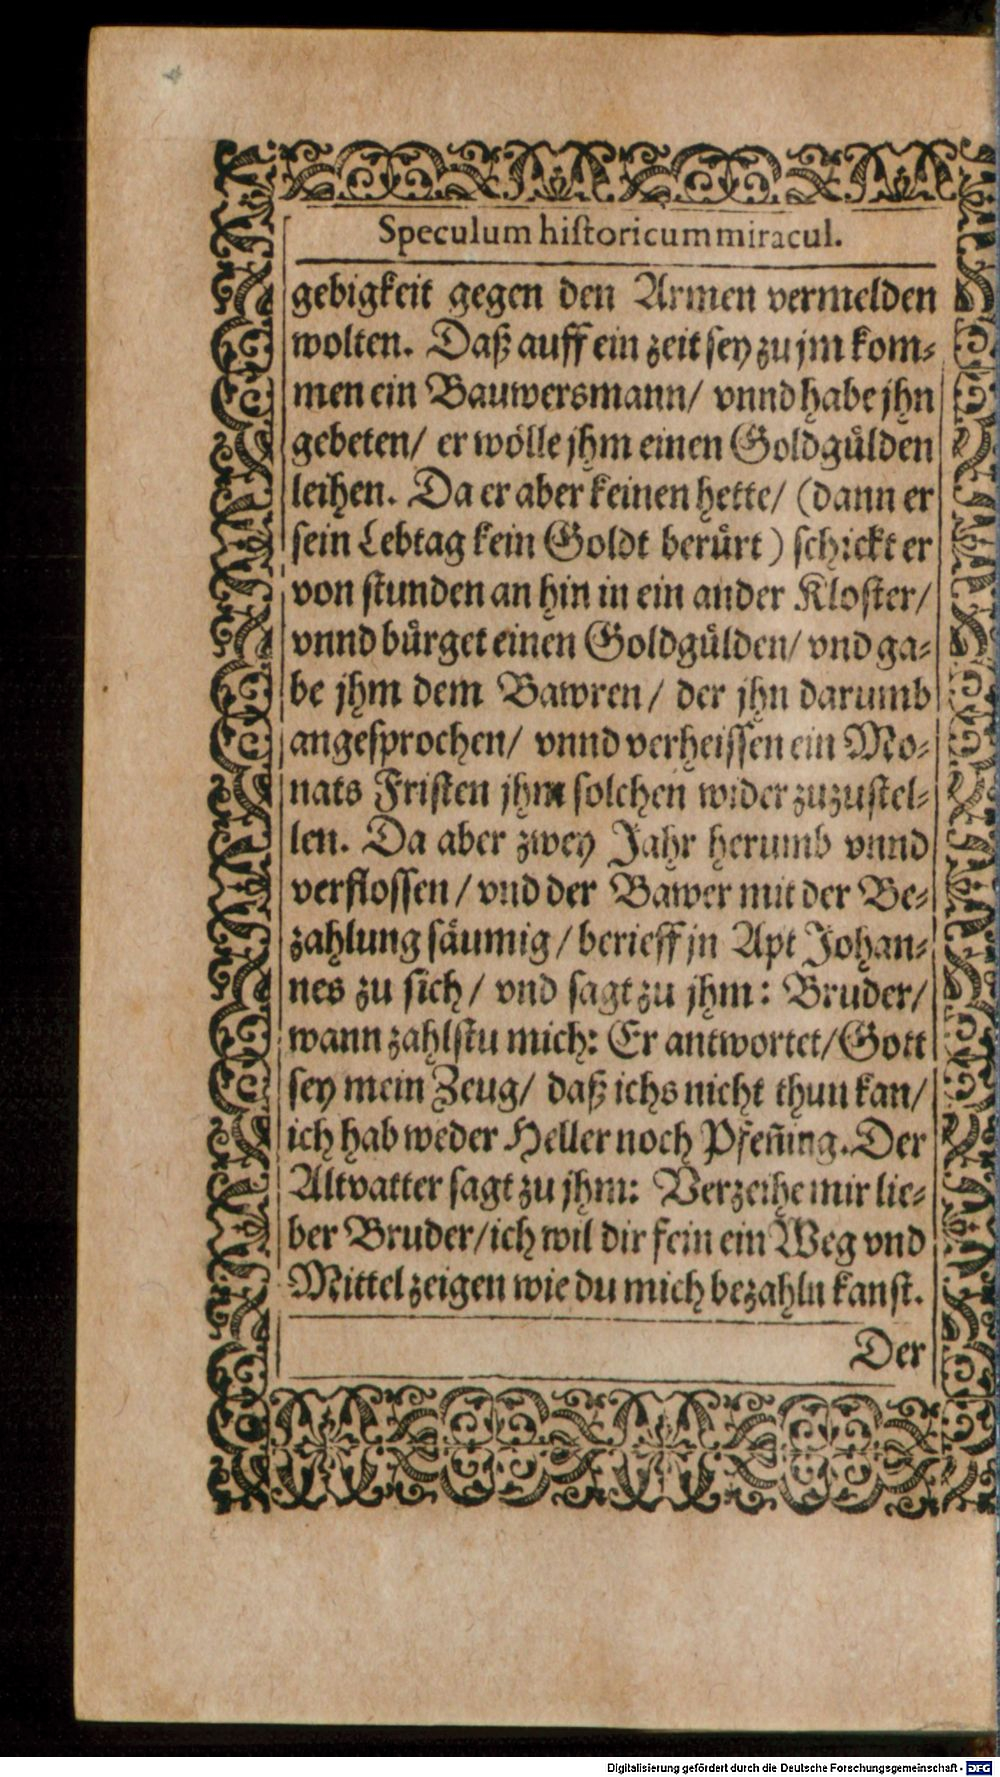 Speculum historicum miracul.
gebigkeit gegen den Armen vermelden
wolten. Daß auff ein zeit sey zu jm kom⸗
men ein Bauwersmann/ vnnd habe jhn
gebeten/ er wölle jhm einen Goldgülden
leihen. Da er aber keinen hette/ (dann er
sein Lebtag kein Goldt berürt) schickt er
von stunden an hin in ein ander Kloster/
vnnd bürget einen Goldgülden/ vnd ga⸗
be jhm dem Bawren/ der jhn darumb
angesprochen/ vnnd verheissen ein Mo⸗
nats Fristen jhm solchen wider zuzustel⸗
len. Da aber zwey Jahr herumb vnnd
verflossen/ vnd der Bawer mit der Be⸗
zahlung säumig/ berieff jn Apt Johan⸗
nes zu sich/ vnd sagt zu jhm: Bruder/
wann zahlstu mich: Er antwortet/ Gott
sey mein Zeug/ daß ichs nicht thun kan/
ich hab weder Heller noch Pfeñing. Der
Altvatter sagt zu jhm: Verzeihe mir lie⸗
ber Bruder/ ich wil dir fein ein Weg vnd
Mittel zeigen wie du mich bezahln kanst.
Der
Digitalisierung gefördert durch die Deutsche Forschungsgemeinschaft - DFG